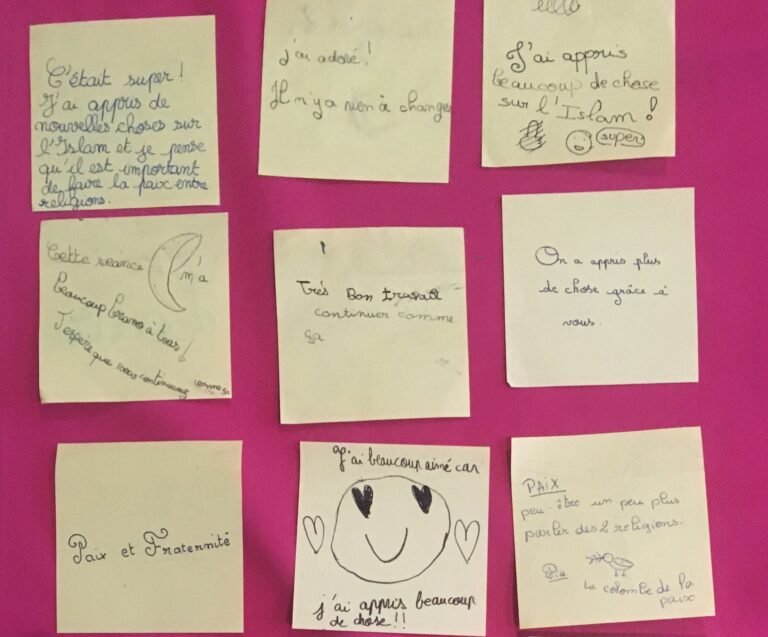 C'était super !
J'ai appris de
nouvelles choses sur
l'Islam et je pense
qu'il est important
de faire la paix entre
religions.
j'ai adoré !
Il n'y a rien à changer
J'ai appris
beaucoup de chose
sur l'Islam !
super
Cette seance m'a
beaucoup bravo à tous !
J'espère que vous continuerez comme sa
Très Bon travail
continuer comme
ça
On a appris plus
de chose grâce à
vous.
Paix et Fraternité
J'ai beaucoup aimé car
j'ai appris beaucoup
de chose !!
PAIX
peu-être un peu plus
parler des 2 religions.
La colombe de la
paix